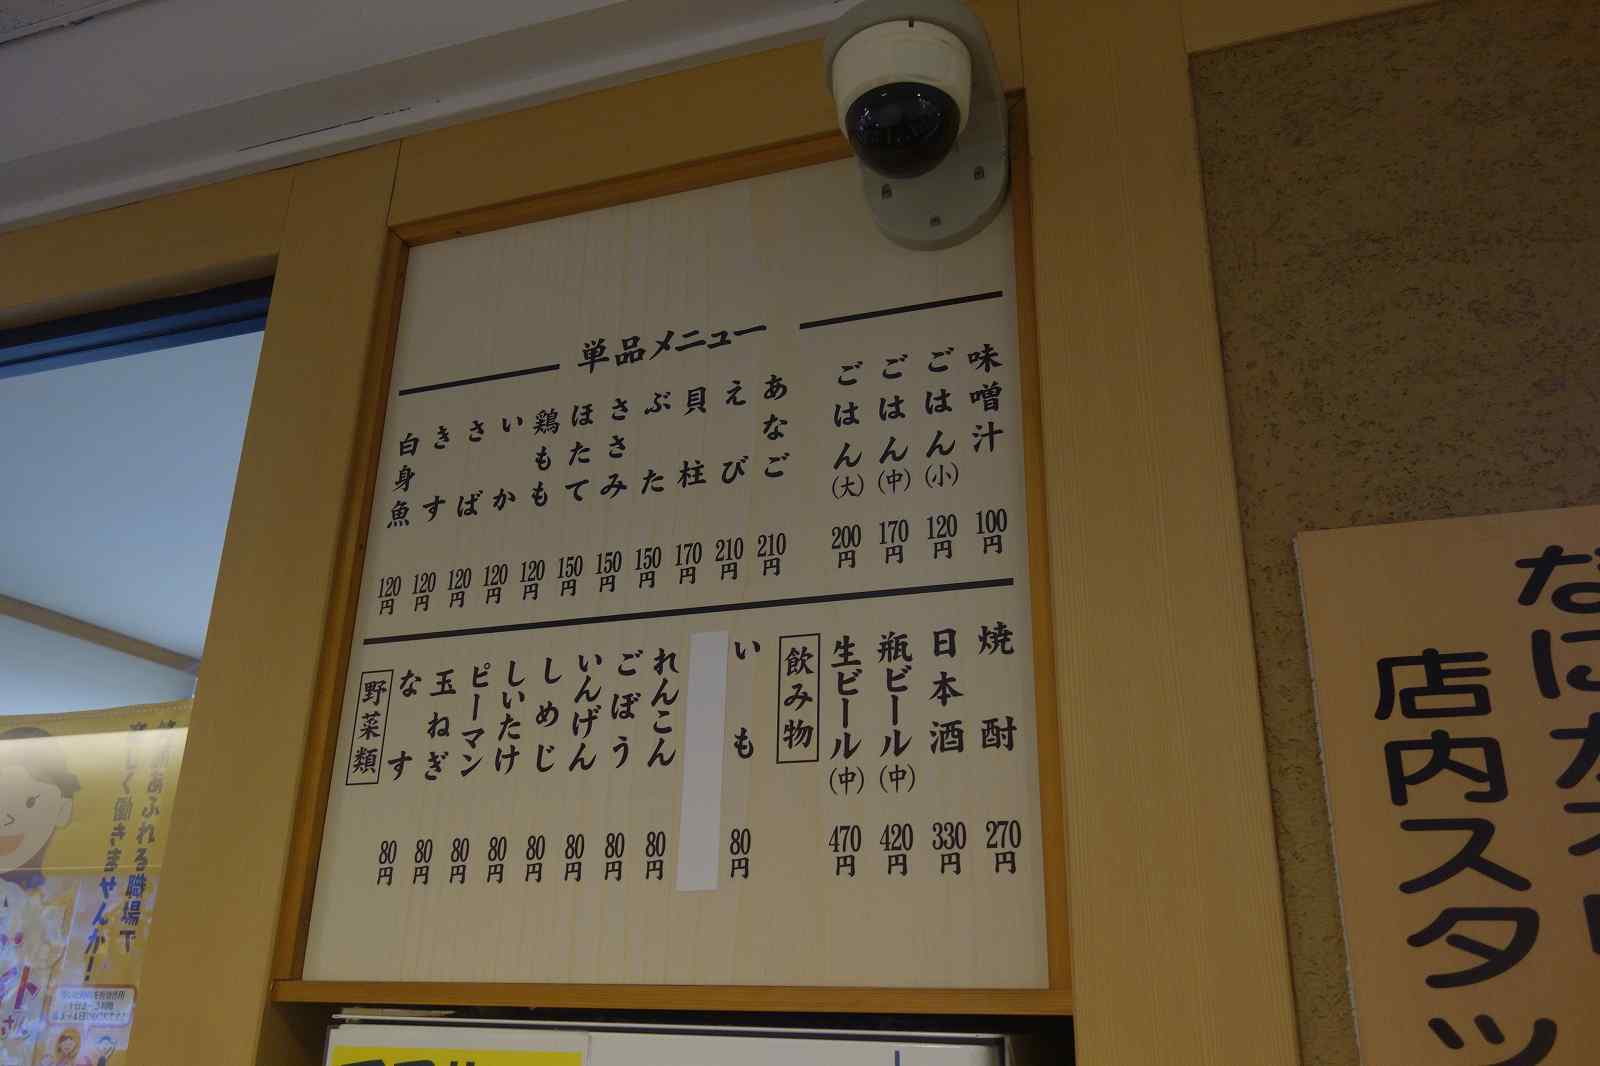 単品メニュー
味噌汁 100円
ごはん(小) 120円
ごはん(中) 170円
ごはん(大) 200円
あなご 210円
えび 210円
貝柱 170円
ぶた 150円
ささみ 150円
ほたて 150円
鶏もも 120円
いか 120円
さば 120円
きす 120円
白身魚 120円
焼酎 270円
日本酒 330円
瓶ビール(中) 420円
生ビール(中) 470円
飲み物
いも 80円
れんこん 80円
ごぼう 80円
いんげん 80円
しめじ 80円
しいたけ 80円
ピーマン 80円
玉ねぎ 80円
なす 80円
野菜類
店内スタッ
あふれる職場で
しく働きませんか!